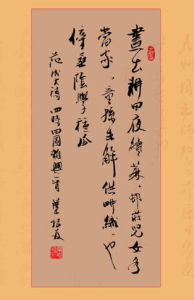 晝出耕田夜績蔴、邨莊兒女各
當家、童孫未解供畊織、也
傍桑陰學種瓜
范成大詩 四時田園雜興一首